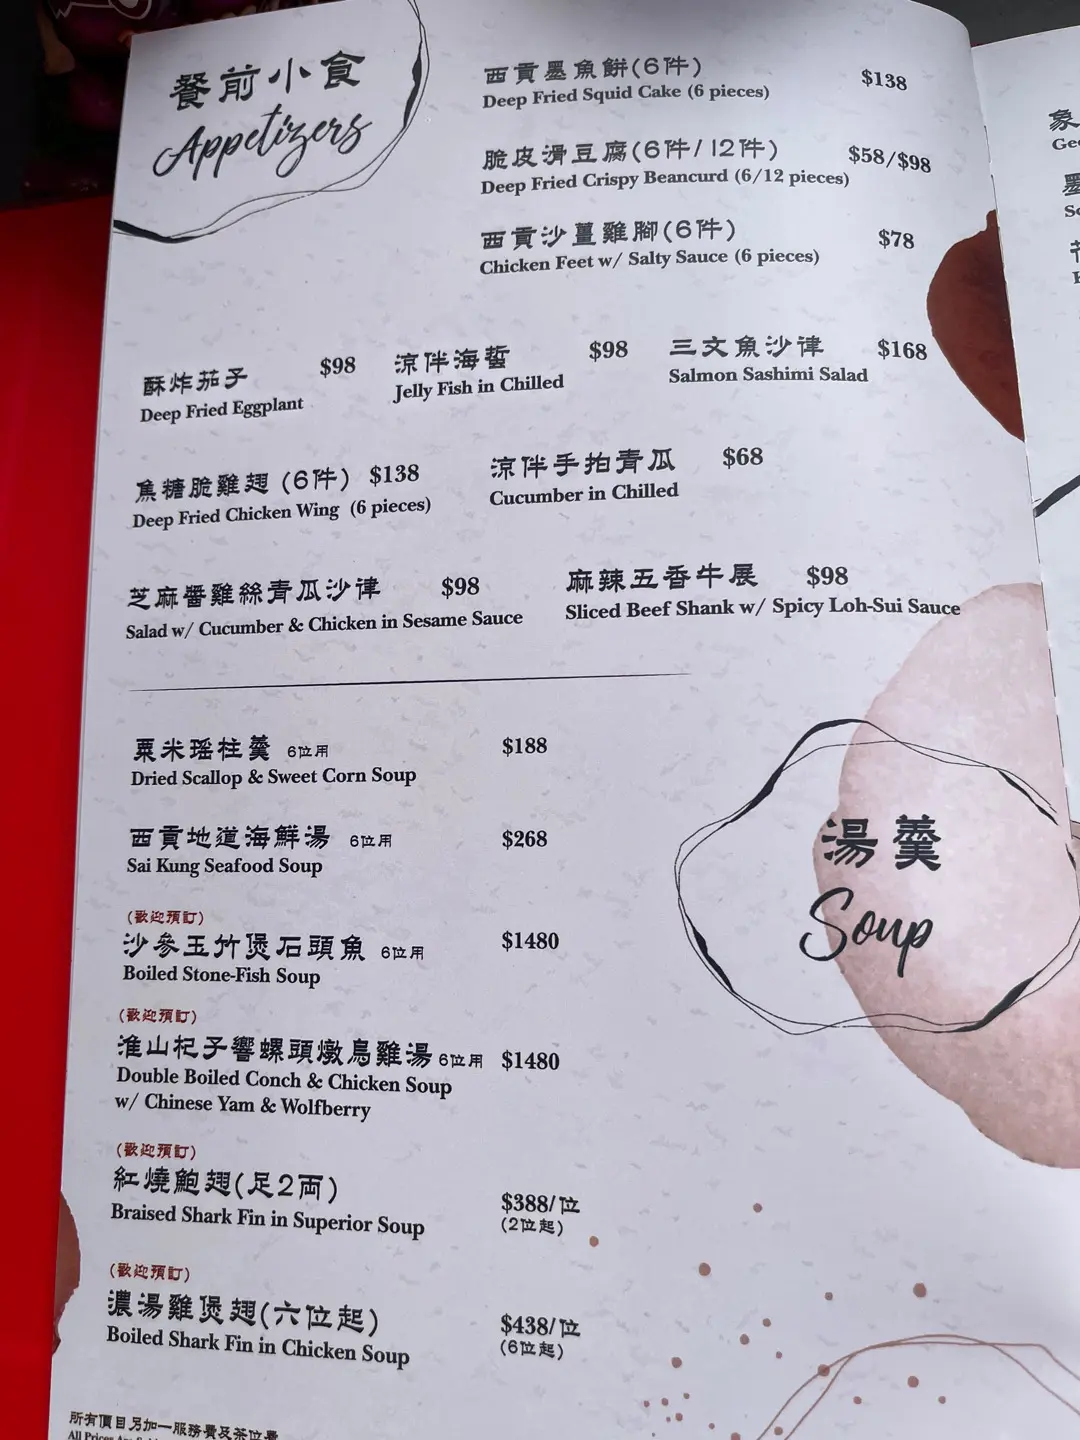 餐前小食
Appetizers
西貢墨魚餅(6件)
$138
Deep Fried Squid Cake (6 pieces)
脆皮滑豆腐(6件/12件)
$58/$98
Deep Fried Crispy Beancurd (6/12 pieces)
西貢沙薑雞腳(6件)
$78
Chicken Feet w/ Salty Sauce (6 pieces)
酥炸茄子
$98
Deep Fried Eggplant
涼伴海蜇
$98
Jelly Fish in Chilled
三文魚沙律
$168
Salmon Sashimi Salad
焦糖脆雞翅 (6件) $138
Deep Fried Chicken Wing (6 pieces)
涼伴手拍青瓜
$68
Cucumber in Chilled
芝麻醬雞絲青瓜沙律
$98
Salad w/ Cucumber & Chicken in Sesame Sauce
麻辣五香牛展
$98
Sliced Beef Shank w/ Spicy Loh-Sui Sauce
湯羹
Soup
粟米瑤柱羹 6位用
$188
Dried Scallop & Sweet Corn Soup
西貢地道海鮮湯 6位用
$268
Sai Kung Seafood Soup
(歡迎預訂)
沙參玉竹煲石頭魚 6位用
$1480
Boiled Stone-Fish Soup
(歡迎預訂)
淮山杞子響螺頭燉烏雞湯 6位用 $1480
Double Boiled Conch & Chicken Soup
w/ Chinese Yam & Wolfberry
(歡迎預訂)
紅燒鮑翅(足2両)
$388/位
Braised Shark Fin in Superior Soup
(2位起)
(歡迎預訂)
濃湯雞煲翅(六位起)
$438/位
Boiled Shark Fin in Chicken Soup
(6位起)
所有價目另加一服務費及茶位費
All Prices Are
象
墨